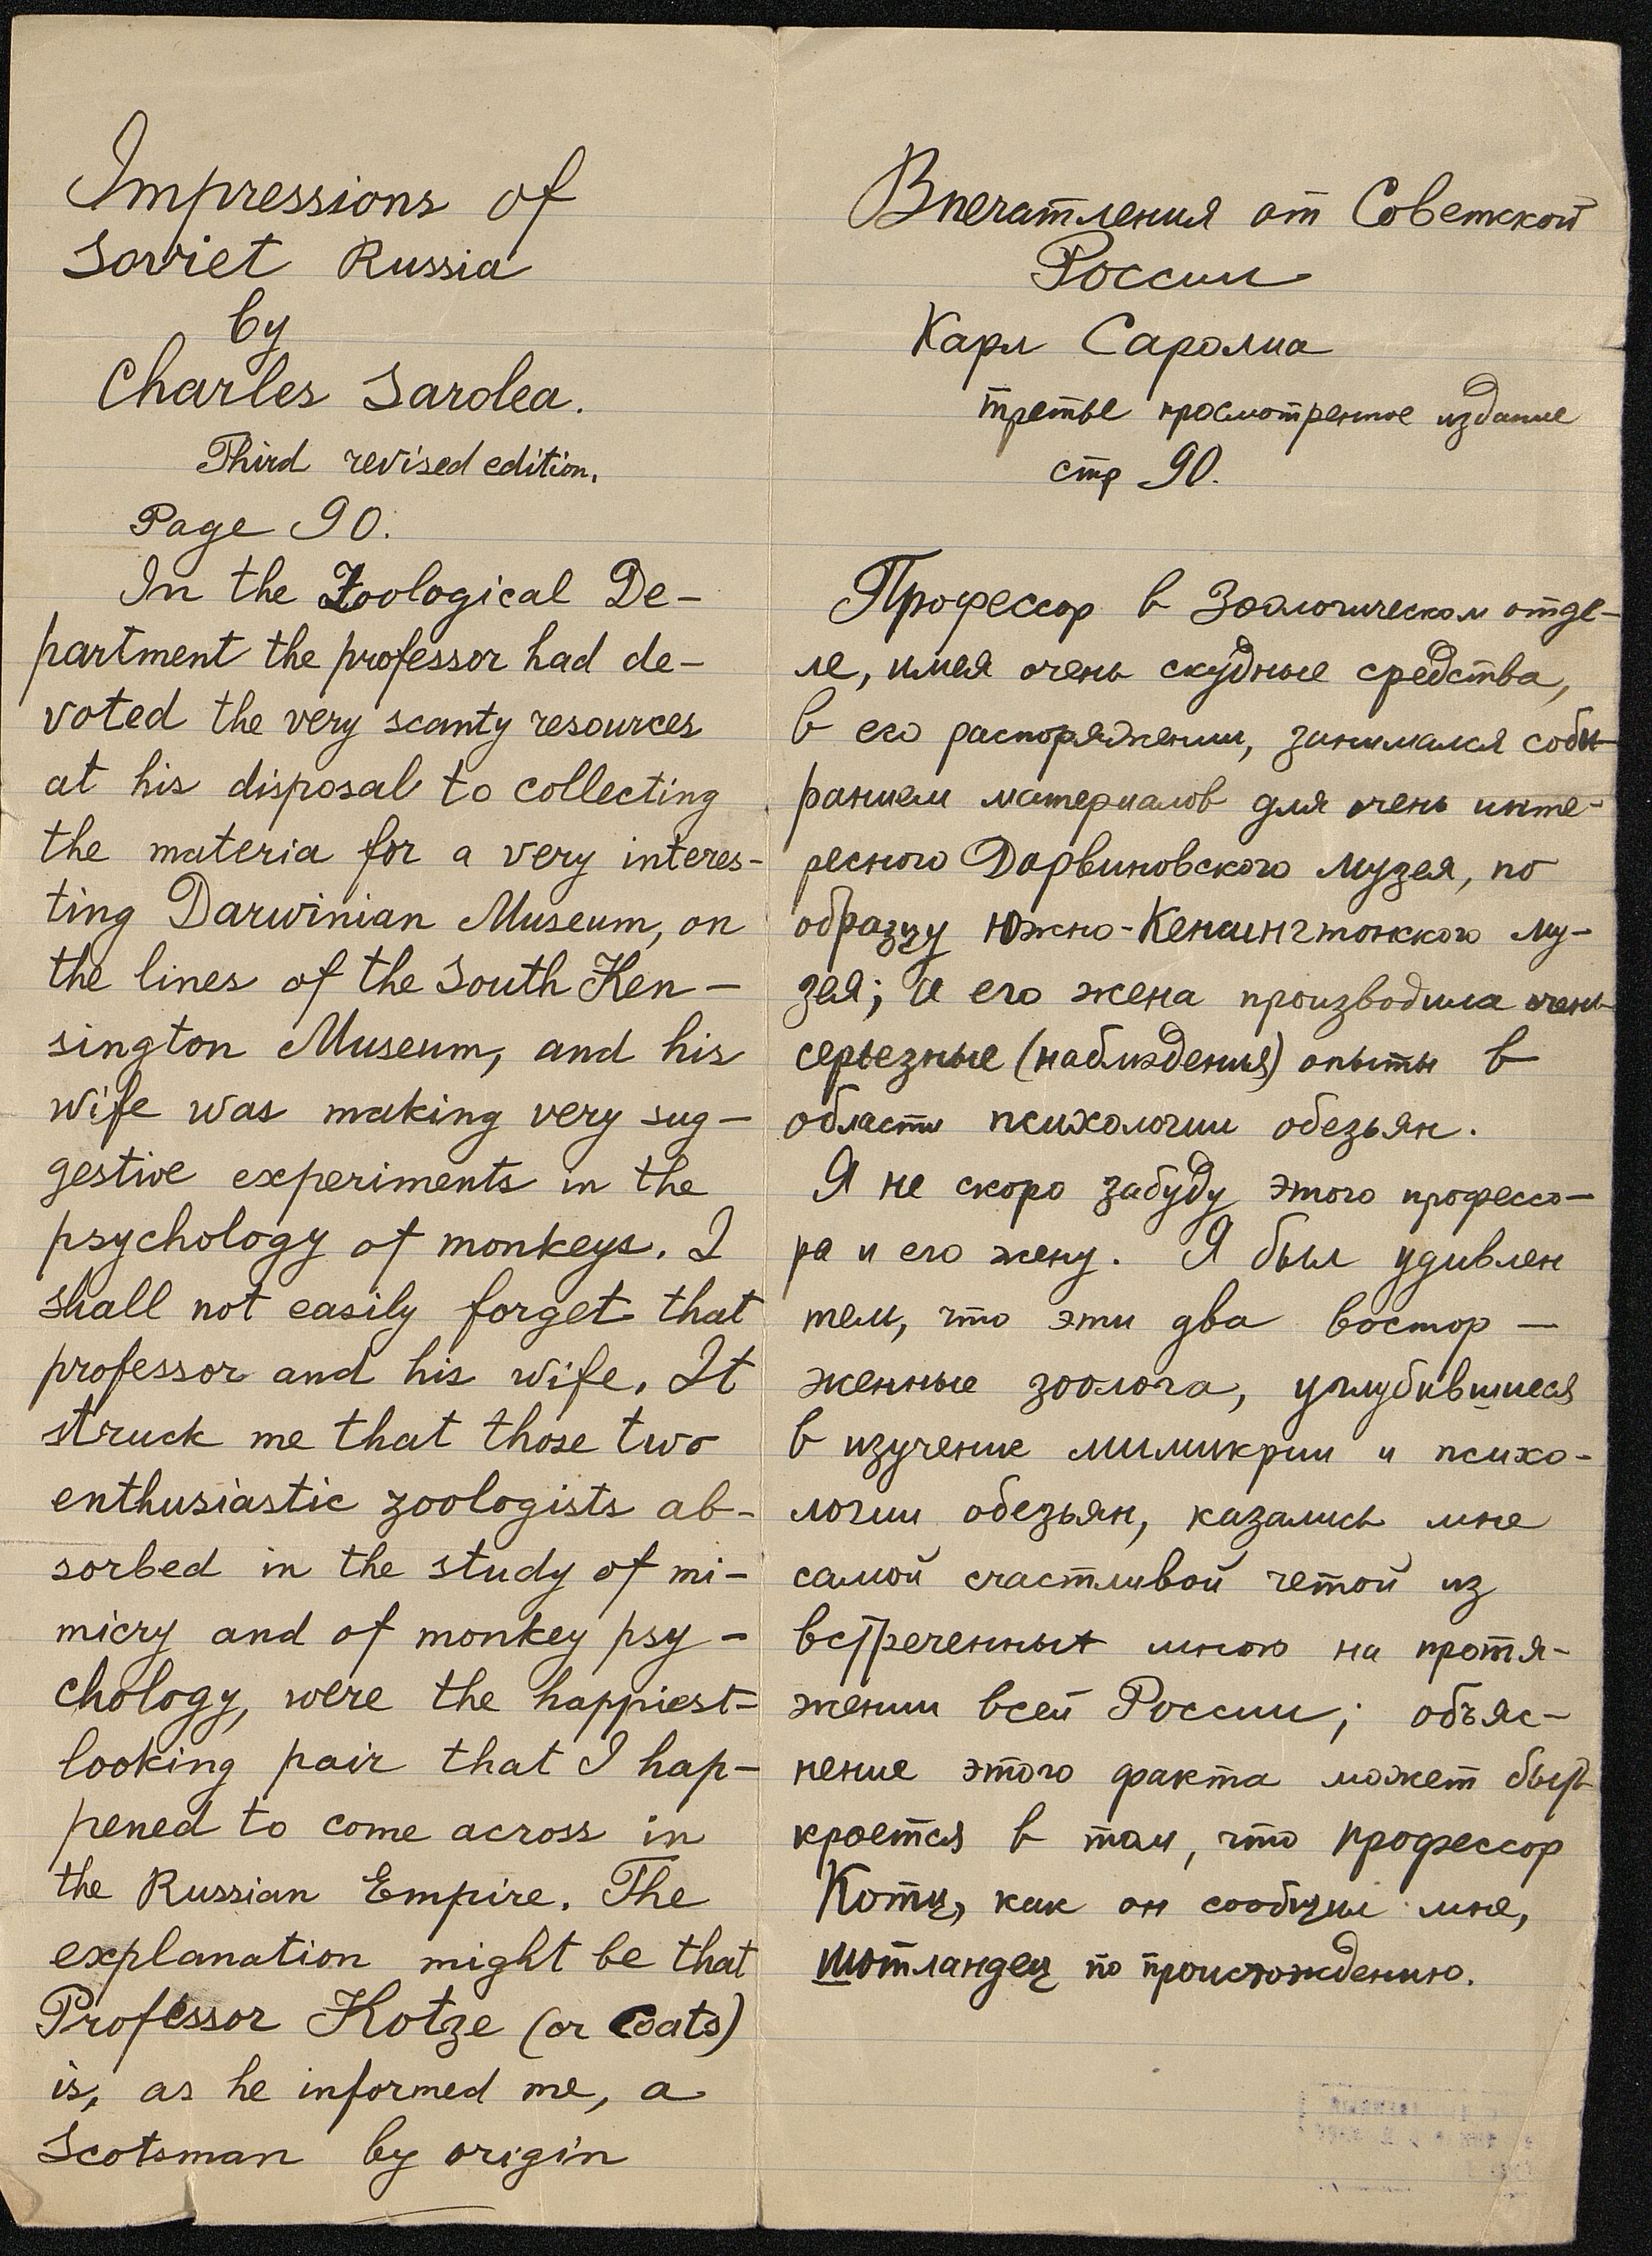 Impressions of
Soviet Russia
by
Charles Sarolea.
Third revised edition.
Page 90.
In the Zoological De-
partment the professor had de-
voted the very scanty resources
at his disposal to collecting
the materia for a very interes-
ting Darwinian Museum, on
the lines of the South Ken-
sington Museum, and his
wife was making very sug-
gestive experiments in the
psychology of monkeys. I
shall not easily forget that
professor and his wife. It
struck me that those two
enthusiastic zoologists ab-
sorbed in the study of mi-
micry and of monkey psy-
chology, were the happiest-
looking pair that I hap-
pened to come across in
the Russian Empire. The
explanation might be that
Professor Kotze (or Coats)
is, as he informed me, a
Scotsman by origin
Впечатления от Советской
России
Карл Саролиа
третье просмотренное издание
стр 90.
Профессор в Зоологическом отде-
ле, имея очень скудные средства,
в его распоряжении, занимался соби-
ранием материалов для очень инте-
ресного Дарвиновского музея, по
образцу Южно-Кенсингтонского му-
зея; и его жена производила очень
серьезные (наблюдения) опыты в
области психологии обезьян.
Я не скоро забуду этого професо-
ра и его жену. Я был удивлен
тем, что эти два востор-
женные зоолога, углубившиеся
в изучение мимикрии и психо-
логии обезьян, казались мне
самой счастливой четой из
встреченных мною на протя-
жении всей России; объяс-
нение этого факта может быть
кроется в том, что профессор
Котц, как он сообщил мне,
шотландец по происхождению.